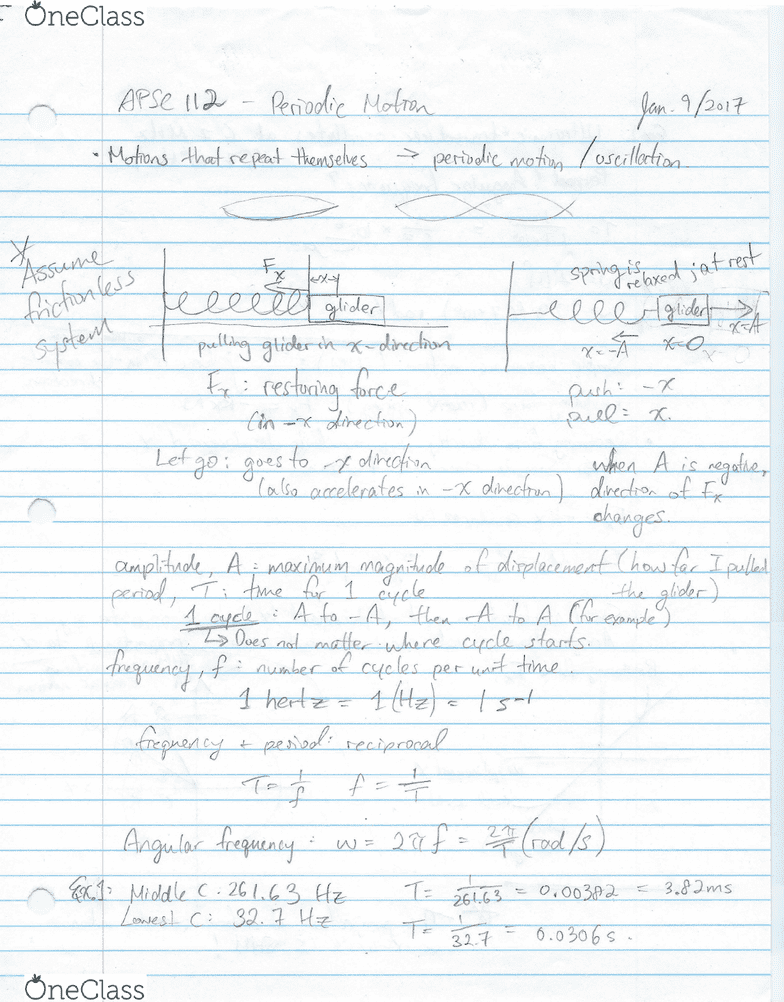 OneClass
APSC 112 - Periodic Motion Jan. 9/2017
• Motions that repeat themselves → periodic motion / oscillation.
* Assume frictionless system
Fx ↔x→ glider
pulling glider in x-direction
spring is relaxed; at rest
glider x=A
x=-A x=0
Fx : restoring force
(in -x direction)
push: -x
pull= x.
Let go: goes to -x direction
(also accelerates in -x direction)
when A is negative,
direction of Fx
changes.
amplitude, A = maximum magnitude of displacement (how far I pulled
the glider)
period, T: time for 1 cycle
1 cycle : A to -A, then -A to A (for example)
↳ Does not matter where cycle starts.
frequency, f : number of cycles per unit time.
1 hertz = 1 (Hz) = 1 s-1
frequency + period: reciprocal
T= 1/f f = 1/T
Angular frequency : w = 2πf = 2π/T (rad/s)
Ex.1: Middle C. 261.63 Hz T= 1/261.63 = 0.00382 = 3.82ms
Lowest C: 32.7 Hz T= 1/32.7 = 0.0306 s.
OneClass